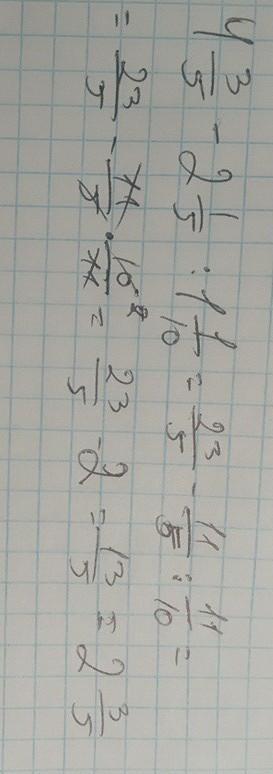 4 3/5 - 2 1/5 : 1 1/10 = 23/5 - 11/5 : 11/10 =
= 23/5 - 11/5 · 10 2/11 = 23/5 - 2 = 13/5 = 2 3/5